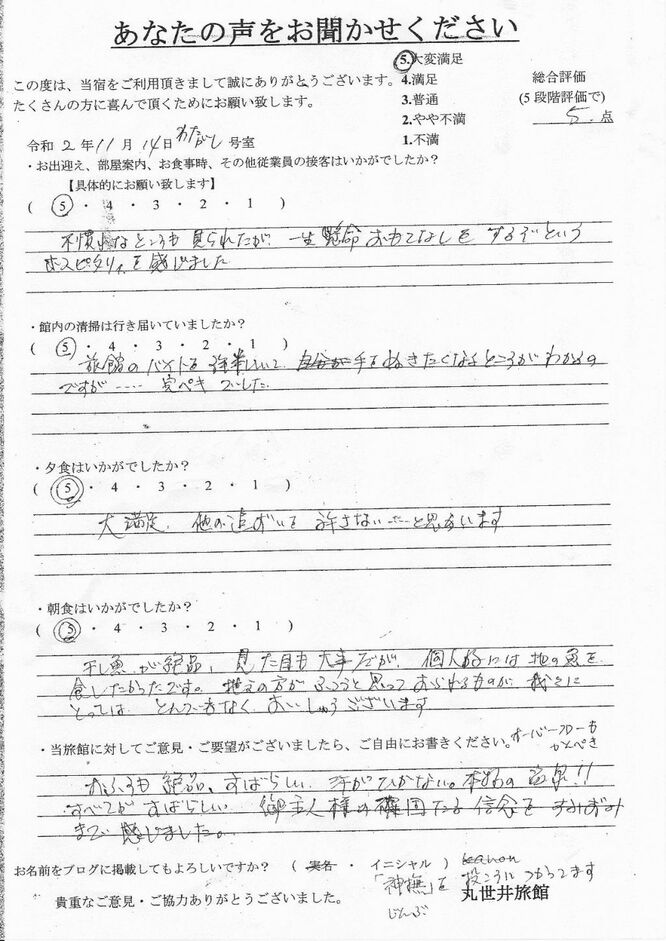 あなたの声をお聞かせください
この度は、当宿をご利用頂きまして誠にありがとうございます。
たくさんの方に喜んで頂くためにお願い致します。
5.大変満足
4.満足
3.普通
2.やや不満
1.不満
総合評価
(5段階評価で)
5.点
令和2年11月14日わたがし号室
・お出迎え、部屋案内、お食事時、その他従業員の接客はいかがでしたか?
【具体的にお願い致します】
( 5 ・ 4 ・ 3 ・ 2 ・ 1 )
不慣れなところも見られたが、一生懸命おもてなしをするぞという
ホスピタリィを感じました
・館内の清掃は行き届いていましたか?
( 5 ・ 4 ・ 3 ・ 2 ・ 1 )
旅館のバイトを 手をぬきたくなるところがわかるの
ですが…… 完ペキでした
・夕食はいかがでしたか?
( 5 ・ 4 ・ 3 ・ 2 ・ 1 )
大満足、他の追ずいを許さない……と思います
・朝食はいかがでしたか?
( 5 ・ 4 ・ 3 ・ 2 ・ 1 )
干し魚が絶品、見た目も大事だが、個人的には地の魚を
食したかったです。地元の方がふつうと思っておられるものが、我々に
とっては、とんでもなく、おいしゅうございます
・当旅館に対してご意見・ご要望がございましたら、ご自由にお書きください。
オーバーフローも
かんぺき
おふろも絶品、すばらしい、汗がひかない。本物の温泉!!
すべてがすばらしい 御主人様の 信念をすみずみ
まで感じました。
お名前をブログに掲載してもよろしいですか? ( 実名 ・ イニシャル ) kanon
「神撫」を
じんぶ
貴重なご意見・ご協力ありがとうございました。
丸世井旅館